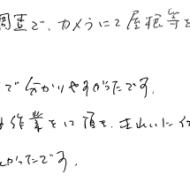 調査で、カメラにて屋根等を
で分かりやすかったです。
作業をして頂き、
かったです。